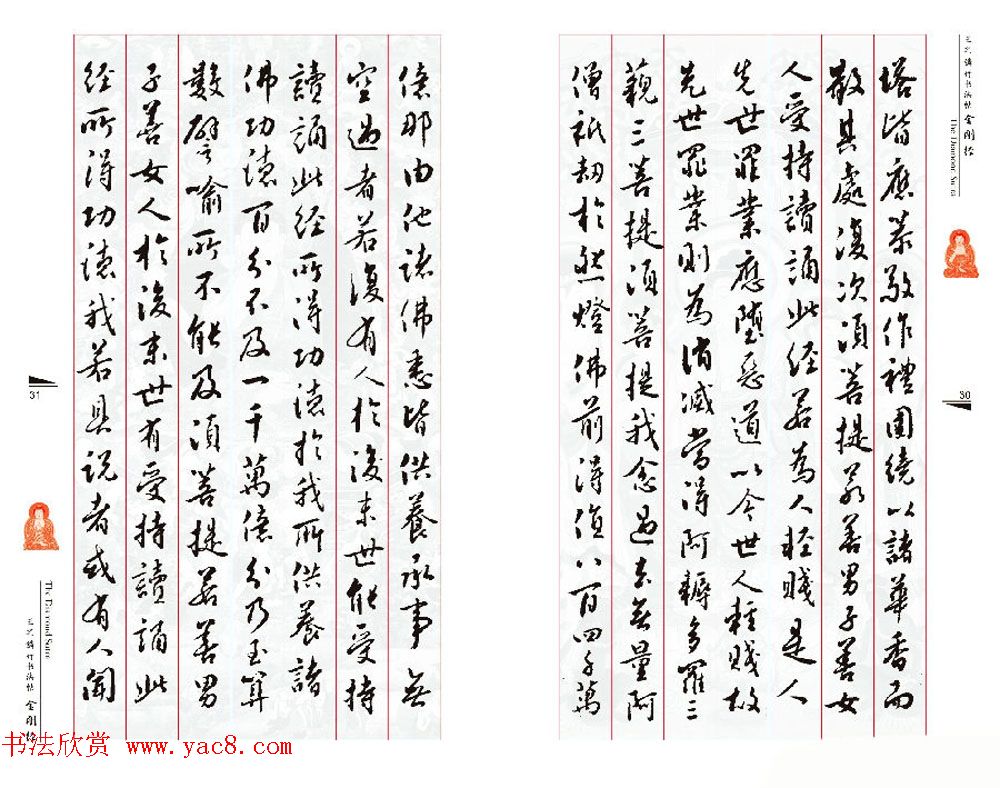 塔皆應恭敬作禮圍繞以諸華香而
散其處復次須菩提若善男子善女
人受持讀誦此经若為人輕賤是人
先世罪業應墮惡道以今世人輕賤故
先世罪業則為消滅當得阿耨多羅三
藐三菩提須菩提我念過去無量阿
僧祇劫於然燈佛前得值八百四千萬
億那由他諸佛悉皆供養承事無
空過者若復有人於後末世能受持
讀誦此经所得功德於我所供養諸
佛功德百分不及一千萬億分乃至算
數譬喻所不能及須菩提若善男
子善女人於後末世有受持讀誦此
经所得功德我若具說者或有人聞
金刚经
The Diamond Sutra
30
31
The Diamond Sutra
金刚经
书法欣赏 www.yac8.com